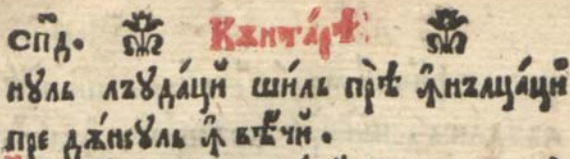 сп҃д. Кѫнтáрѣ:
нꙋль лъꙋдáцй шѝль прѣ ꙟ҆нълцáцй
пре дѫ́нсꙋль ꙟ҆ вѣ́чй.